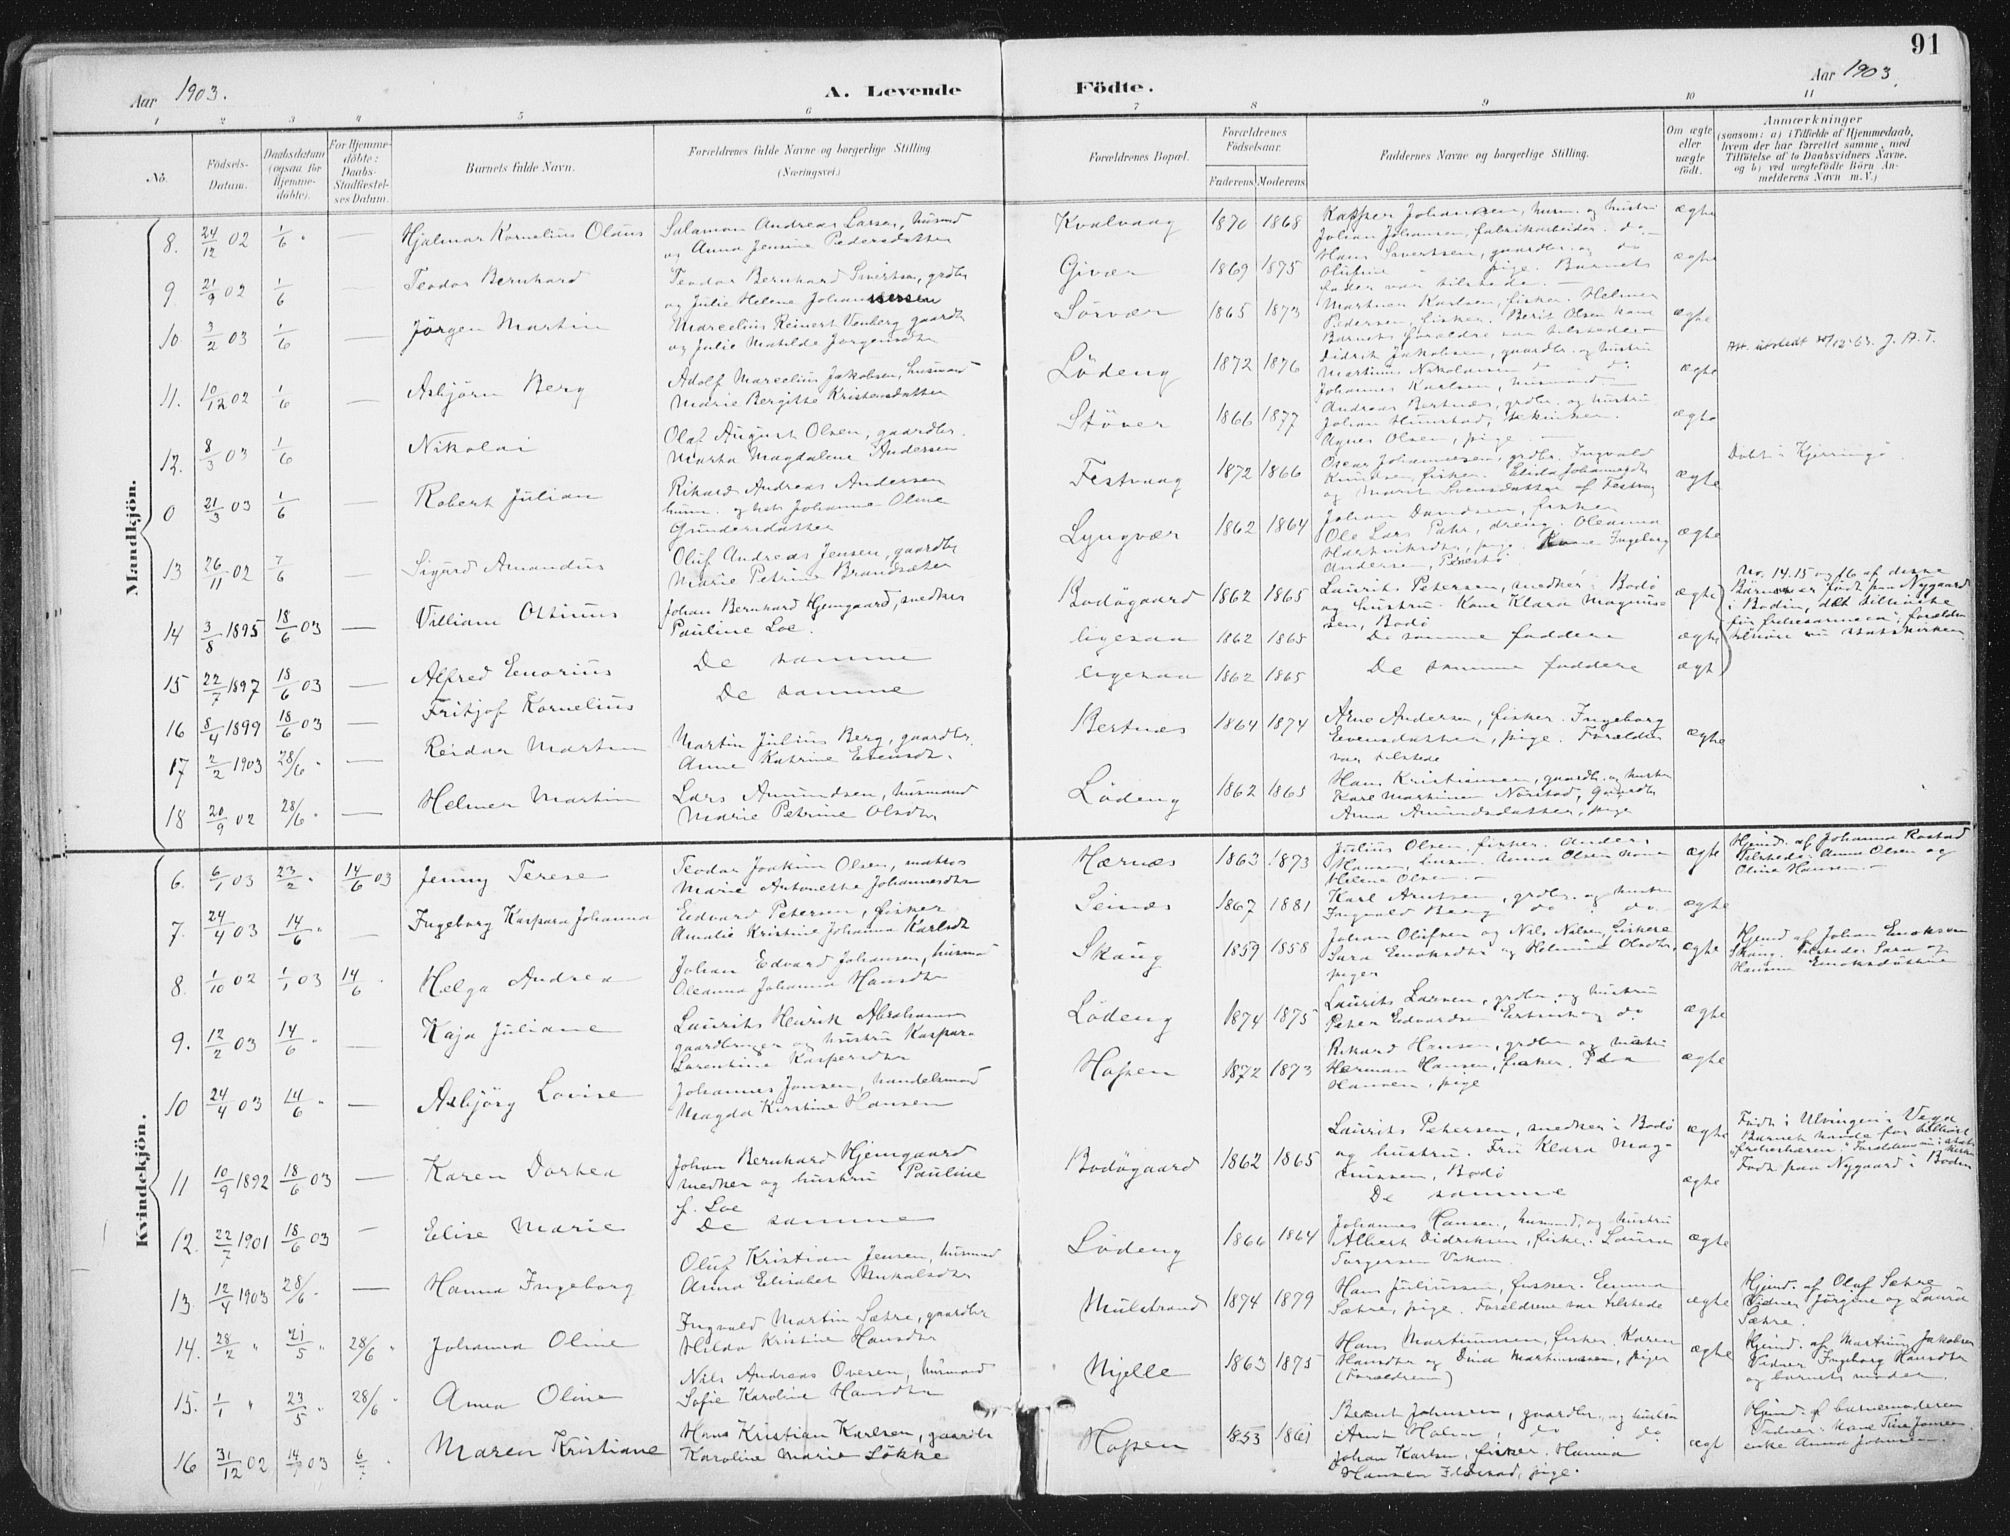 91
Aar 1903.
A. Levende Födte.
Aar 1903.
1 2 3 4 5 6 7 8 9 10 11
No.
Födsels-Datum.
Daabsdatum (ogsaa for Hjemme-döbte).
For Hjemme-döbte: Daabs-Stadfæstel-ses Datum.
Barnets fulde Navn.
Forældrenes fulde Navne og borgerlige Stilling (Næringsvei.)
Forældrenes Bopæl.
Forældrenes Födselsaar.
Faderens Moderens
Faddernes Navne og borgerlige Stilling.
Om ægte eller uægte födt.
Anmærkninger
(saasom: a) i Tilfælde af Hjemmedaab,
hvem der har forrettet samme, med
Tilföielse af to Daabsvidners Navne,
og b) ved uægtefödte Börn An-
melderens Navn m. V.)
Mandkjön.
8. 24/12 02 1/6 " — Hjalmar Kornelius Olaus
Salamon Andreas Larsen, husmd
og Anna Jensine Pedersdatter
Kvalvaag 1870 1868
Kasper Johansen, husm. og hustru
Johan Johansen, fabrikarbeider do —
ægte
9 21/9 02 1/6 — Teodor Bernhard
Teodor Bernhard Sivertsen, grdbr
og Julie Helene Johannessen
Givær 1869 1875
Hans Sivertsen, gaardbr. og do
pige. Barnets
fader var tilstede. —
ægte
10 3/2 03 1/6 — Jörgen Martin
Marcelius Reinert Venberg gaardb
og Julie Matilde Jörgensdtr
Sörvær 1865 1873
Martner Karlsen, fisker. Helmer
Pedersen, fisker. Berit Olsen kone
Barnets forældre var tilstede —
ægte
11. 10/12 02 1/6 — Asbjörn Berg
Adolf Marcelius Jakobsen, husmand
Marie Bergitte Kristensdatter
Lödeng 1872 1876
Didrik Jakobsen, gaardbr. og hustru
Martinus Nikolaisen do do
Johannes Karlsen, husmand —
ægte
Att. utstedt 10/12-63. J. A. T.
12. 8/3 03 1/6 Nikolai
Olaf August Olsen, gaardbr.
Marta Magdalene Andersen
Stöver 1866 1877
Andreas Bertnæs, grdbr. og hustru
Agnes Olsen, pige. —
ægte
0 21/3 03 1/6 — Robert Julian
Rikard Andreas Andersen
husm. og hst. Johanne Oline
Gundersdatter
Festvaag 1872 1866
Oscar Johannesen, grdbr. Ingvald
Knudsen, fisker. Elida Johannesdtr
og Marit Svensdatter af Festvaag
ægte
Döbt i Kjerringö
13 26/11 02 7/6 — Sigurd Amandus
Oluf Andreas Jensen, gaardbr
Marie Petrine Brandsæter
Lyngvær 1862 1864
Johan Davidsen, fisker
Ole Lars Pehr, dreng. Oleanna
Hartviksdtr, pige. Ingeborg
Andersen,
ægte
14 3/8 1895 18/6 03 — Villiam Ottinus
Johan Bernhard Hjemgaard, snedker
Pauline Loe.
Bodögaard 1862 1865
Laurits Petersen, snedker i Bodö
og hustru. Kone Klara Magnus-
sen, Bodö
ægte
No. 14. 15 og 16 af disse
Börn er födt paa Nygaard
i Bodin, det tilhörte
för frelsesarmeen; forældre
tilhöre nu statskirken
15 22/7 1897 18/6 03 — Alfred Enorius
De samme
ligesaa 1862 1865
De samme faddere
ægte
16 8/4 1899 18/6 03 — Fritjof Kornelius
De samme
ligesaa 1862 1865
De samme faddere
ægt
17 2/2 1903 28/6 " — Reidar Martin
Martin Julius Berg, gaardbr.
Anne Katrine Evensdtr.
Bertnæs 1864 1874
Arne Andersen, fisker. Ingeborg
Evensdatter, pige. Forældr
var tilstede
ægte
18 20/9 02 28/6 " — Helmer Martin
Lars Amundsen, husmand
Marie Petrine Olsdtr
Lödeng 1862 1865
Hans Kristiansen, gaardbr. og hustru
Karl Martinsen Norstad, Gaardbr
Anna Amundsdatter, pige
Kvindekjön.
6. 6/1 03 23/2 " 14/6 03 Jenny Terese
Teodor Joakim Olsen, matros
Marie Antonette Johannesdtr
Hærnæs 1863 1873
Julius Olsen, fisker. Anders
Hansen, husm. Anna Olsen kone
Helene Olsen. —
ægte
Hjmd. af Johanna Rostad
Tilstede: Anna Olsen og
Oline Hansen. —
7. 24/4 03 14/6 " — Ingeborg Kaspara Johanna
Edvard Petersen, fisker
Amalie Kristine Johanna Karlsdtr
Seines 1867 1881
Karl Arntsen, grdbr. og hustru
Ingvald Berg do do
ægte
8. 1/10 02 1/1 03 14/6 " Helga Andrea
Johan Edvard Johansen, husmd
Oleanna Johanna Hansdtr
Skaug 1859 1858
Johan Olufsen og Nils Nilsen, fiskere
Sara Enoksdtr og Helmine Olsdtr,
piger
ægte
Hjmd af Johan Enoksen
Skaug. Tilstede: Sara og
Hansine Enoksdatter
9. 12/2 03 14/6 " — Kaja Juliane
Laurits Henrik Abrahamsen
gaardbruger og hustru Kaspara
Larentine Kaspersdtr
Lödeng 1874 1875
Laurits Larsen, grdbr. og hustru
Peter Edvardsen do
ægte
10 24/4 03 14/6 " — Asbjörg Lovise
Johannes Jensen, handelsmand
Magda Kirstine Hansen
Hopen 1872 1873
Rikard Hansen, grdbr og hustru
Herman Hansen, fisker.
Hansen, pige
ægte
11 10/9 1892 18/6 03 — Karen Dorthea
Johan Bernhard Hjemgaard
snedker og hustru Pauline
f. Loe
Bodögaard 1862 1865
Laurits Petersen, snedker i Bodö
og hustru. Fru Klara Mag-
nussen, Bodö
ægte
Födt i Ulvingen i Vega
Barnet havde för tilhört
"frelseshæren".
12. 22/7 1901 18/6 03 — Elise Marie
De samme
De samme
ægte
Födt paa Nygaard i Bodin
13. 12/4 1903 28/6 " — Hanna Ingeborg
Oluf Kristian Jensen, husmd
Anna Elisabet Mikalsdtr
Lödeng 1866 1864
Johannes Hansen, husmd, og hustru
Albert Didriksen, fisker. Laura
Torgersen
ægte
14. 28/2 " 21/5 " 28/6 " Johanna Oline
Ingvald Martin Sætre, gaardbr
Hilda Kristine Hansdtr
Mulstrand 1874 1879
Hans Juliussen, fisker. Emma
Sætre, pige. Forældrene var tilstede
ægte
Hjmd. af Olaf Sætre
Vidner Jörgine og Laura
Sætre.
15. 1/1 " 23/5 " 28/6 " Anna Oline
Nils Andreas Ovesen, husmand
Sofie Karoline Hansdtr
Mjelle 1863 1875
Hans Martinussen, fisker. Karen
Hansdtr og Dina Martinussen, piger
(Forældrene)
ægte
Hjmd. af Martinus Jakobsen
Vidner Ingeborg Hansdtr
og barnets moder.
16 31/12 02 14/1 03 6/7 " Maren Kristiane
Hans Kristian Karlsen, gaardbr
Karoline Marie Lökke
Hopen 1853 1861
Bernt Johnsen, gaardbr. og hustru
Arnt Holm, do do
Johan Karlsen, fisker. Hanna
Hansen pige.
ægt
Hjmd. af barnemoderen
Vidner: kone Tina Jensen
enke Anna Johnsen.